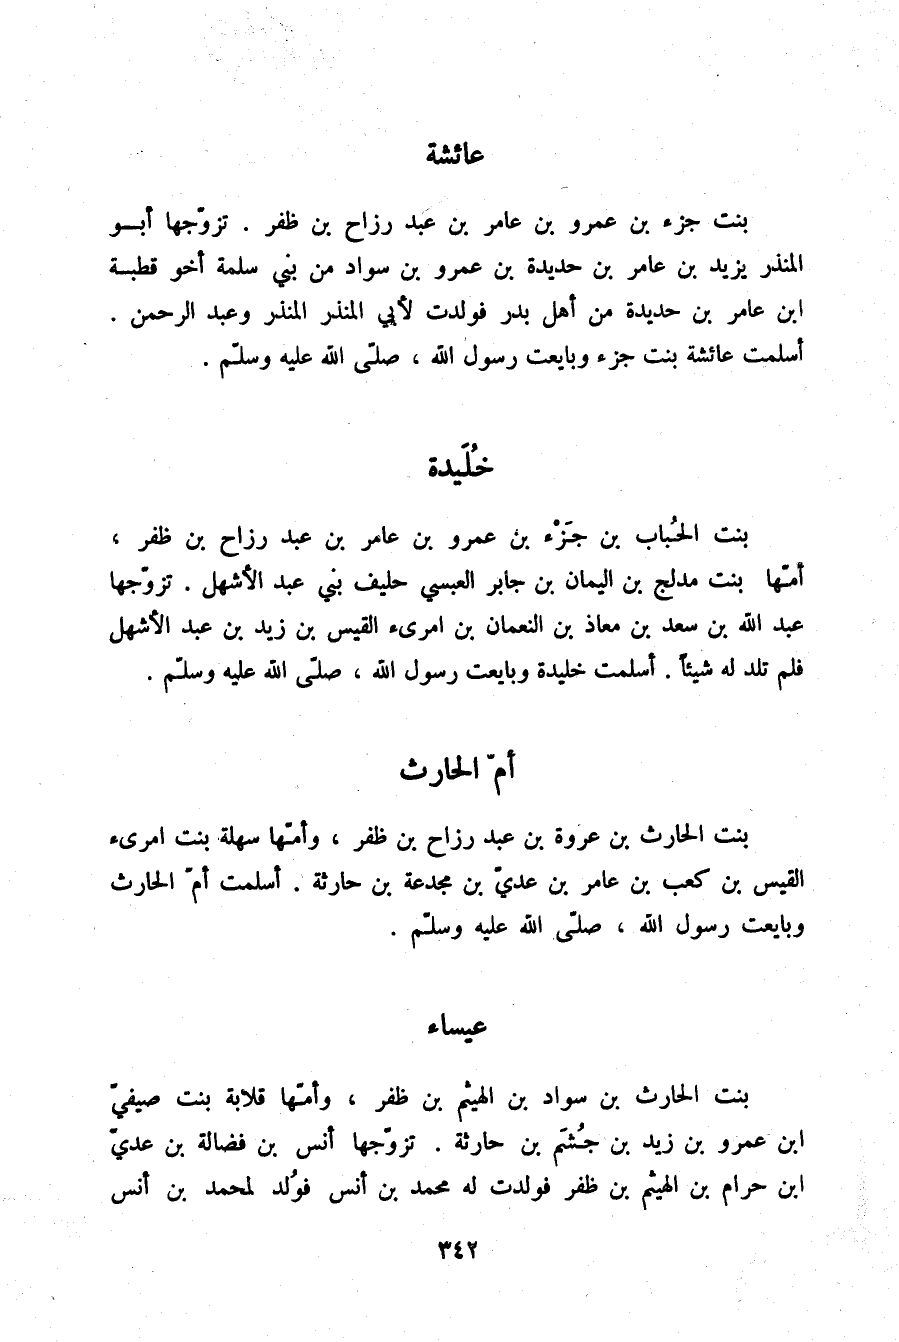 عائشة
بنت جزء بن عمرو بن عامر بن عبد رزاح بن ظفر . تزوّجها أبـــو
المنذر يزيد بن عامر بن حديدة بن عمرو بن سواد من بني سلمة أخو قطبــة
ابن عامر بن حديدة من أهل بدر فولدت لأبي المنذر المنذر وعبد الرحمن .
أسلمت عائشة بنت جزء وبايعت رسول الله ، صلّى الله عليه وسلّم .
خُلَيدة
بنت الحُباب بن جَزْء بن عمرو بن عامر بن عبد رزاح بن ظفر ،
أمّها بنت مدلج بن اليمان بن جابر العبسي حليف بني عبد الأشهل . تزوّجها
عبد الله بن سعد بن معاذ بن النعمان بن امرىء القيس بن زيد بن عبد الأشهل
فلم تلد له شيئاً . أسلمت خليدة وبايعت رسول الله ، صلّى الله عليه وسلّم .
أمّ الحارث
بنت الحارث بن عروة بن عبد رزاح بن ظفر ، وأمّها سهلة بنت امرىء
القيس بن كعب بن عامر بن عديّ بن مجدعة بن حارثة . أسلمت أمّ الحارث
وبايعت رسول الله ، صلّى الله عليه وسلّم .
عيساء
بنت الحارث بن سواد بن الهيثم بن ظفر ، وأمّها قلابة بنت صيفيّ
ابن عمرو بن زيد بن جُشَم بن حارثة . تزوّجها أنس بن فضالة بن عديّ
ابن حرام بن الهيثم بن ظفر فولدت له محمد بن أنس فوُلد لمحمد بن أنس
٣٤٢